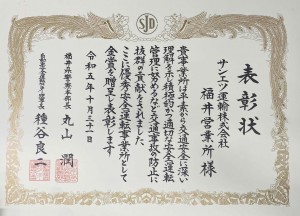 SJD
表彰状
サンエツ運輸株式会社
福井営業所 様
貴事業所は平素から交通安全に深い
理解を示し積極的かつ適切な安全運転
管理に努めるなど交通事故の防止に
抜群の貢献をされました
ここに優秀安全運転事業所として
金賞を贈呈し表彰します
令和五年十月三十一日
福井県警察本部長
丸山 潤
自動車安全運転センター理事長
種谷良二